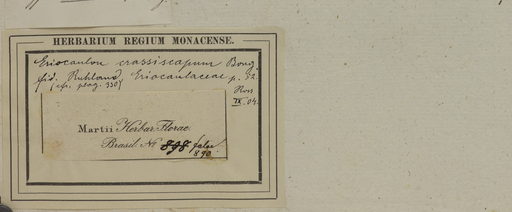 HERBARIUM REGIUM MONACENSE.
Eriocaulon crassiscapum Bong.
fid. Ruhland, Eriocaulaceae p. 82.
(cfr. pag. 330)
Ross
IX. 04.
Martii Herbar. Florae
Brasil. No 898 false
890